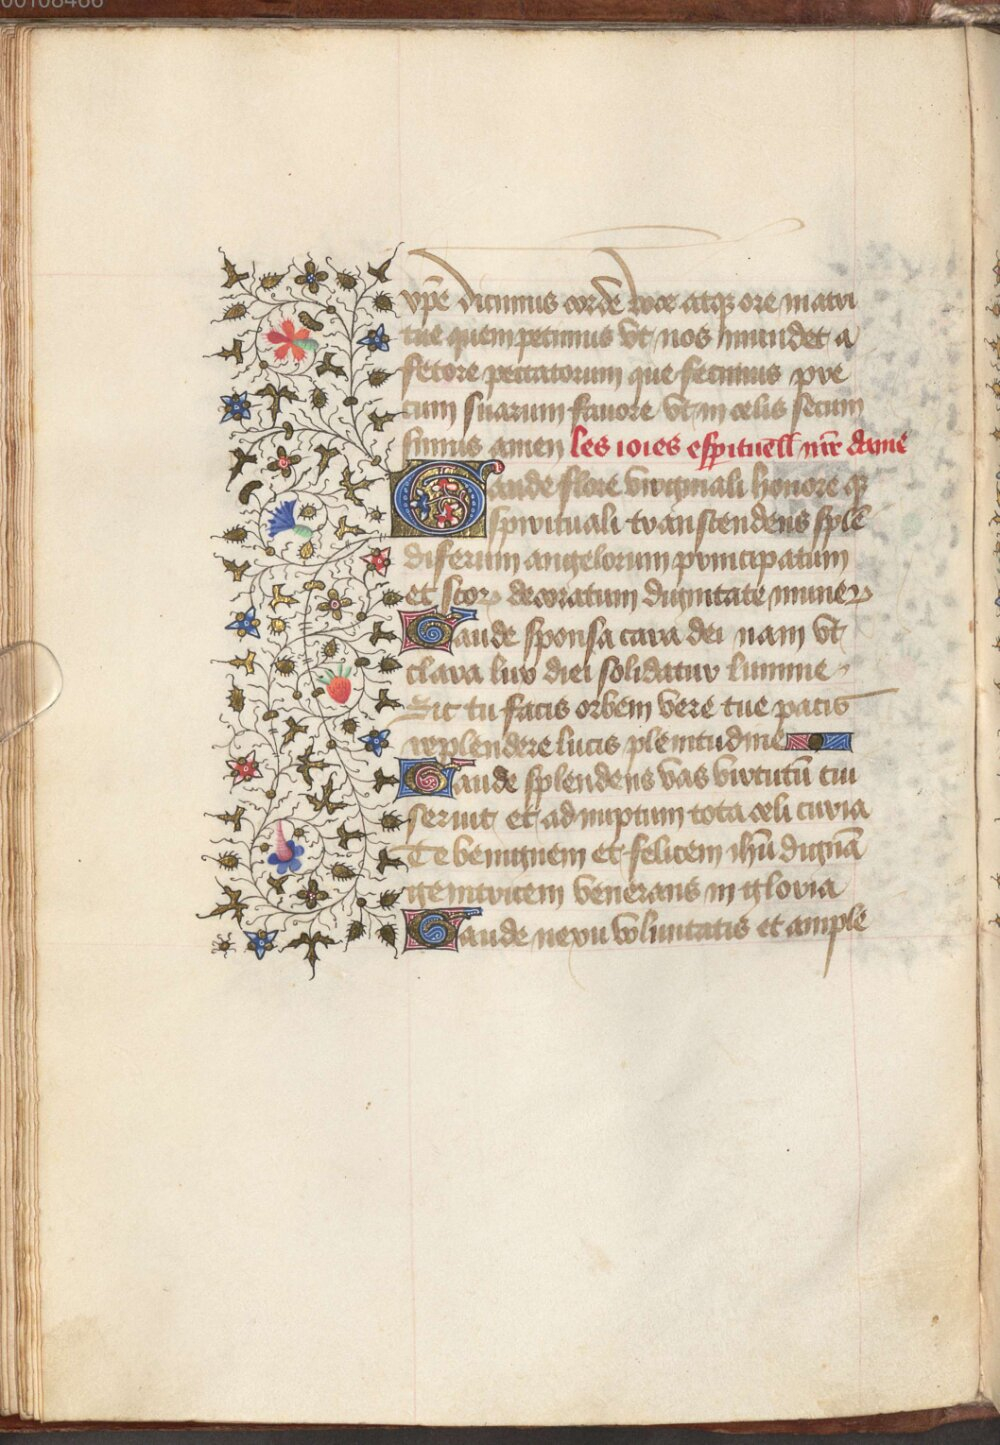 00108466
xp̄e dicimus corde voce atqȝ ore matri
tue quem petimus vt nos mundet a
fetore peccatorum que fecimus pre
cum suarum fauore vt in celis secum
simus amen les ioies esp̄ituell̄ nr̄e dame
Gaude flore virginali honore qȝ
spirituali transcendens splē
diferum angelorum principatum
et sc̄oꝝ decoratum dignitate muneꝝ
Gaude sponsa cara dei nam vt
clara lux diei solidatur lumine
Sic tu facis orbem vere tue pacis
resplendere lucis plenitudine
Gaude splendens vas virtutū cui
seruit et ad nuptum tota celi curia
Te benignem et felicem ih̄u dignā
genitricem venerans in gloria
Gaude nexu voluntatis et ample